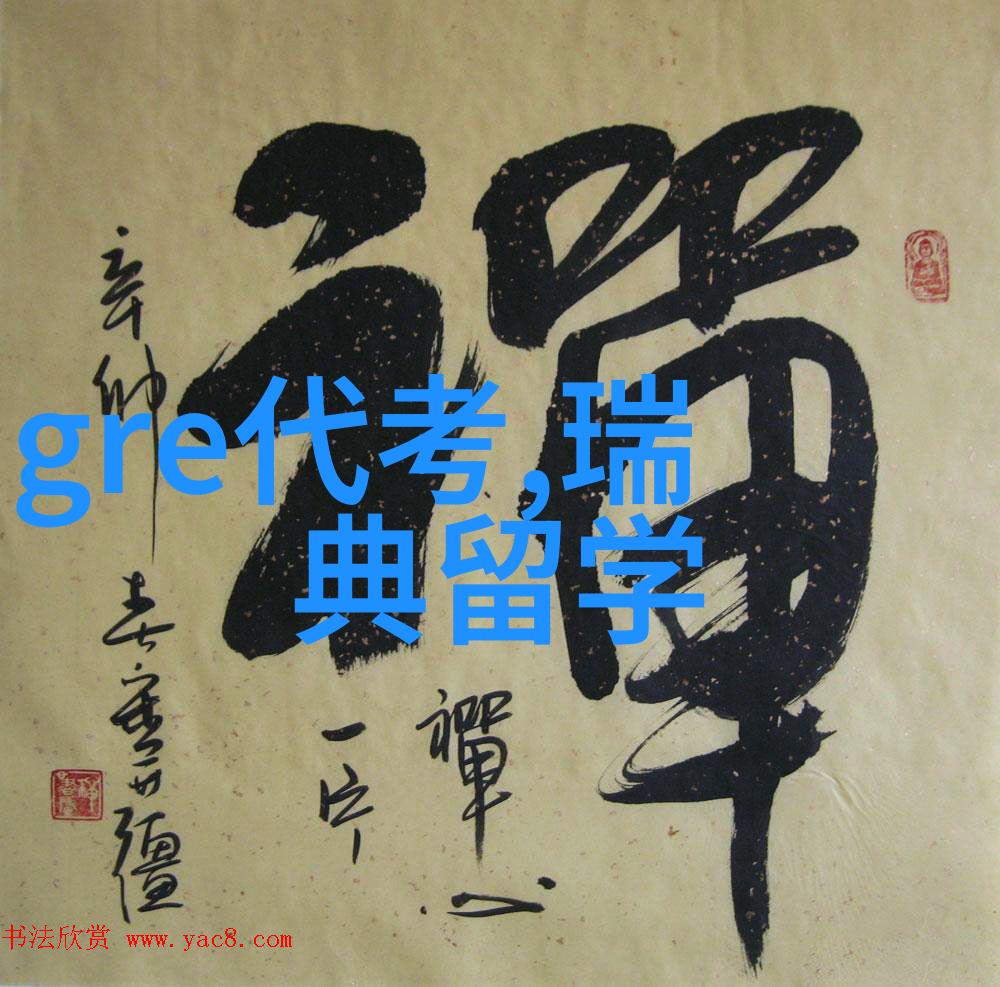 禪
gre代考,瑞
典留学
禪心
一片
辛卯春
书法欣赏 www.yac8.com